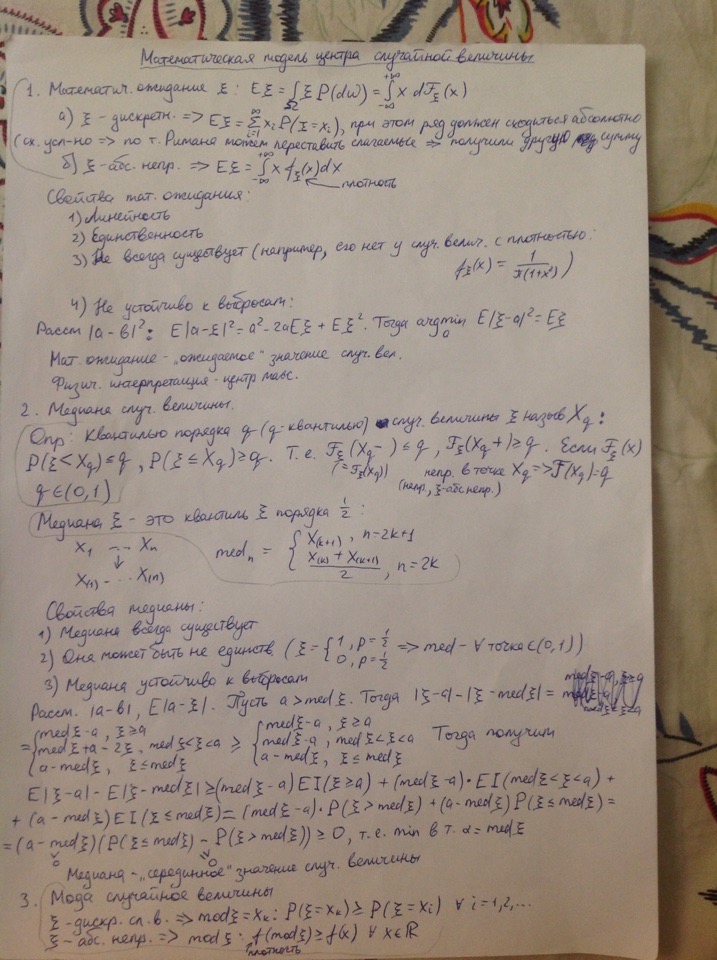 Математическая модель центра случайной величины.
1. Математич. ожидание ξ: Eξ = ∫_Ω ξ P(dω) = ∫_{-∞}^{+∞} x dF_ξ(x)
а) ξ - дискретн. => Eξ = Σ_{i=1}^{∞} x_i P(ξ = x_i), при этом ряд должен сходиться абсолютно
(сх. усл-но => по т. Римана можем переставить слагаемые => получили другую сумму
б) ξ - абс. непр. => Eξ = ∫_{-∞}^{+∞} x f_ξ(x) dx
плотность
Свойства мат. ожидания:
1) Линейность
2) Единственность
3) Не всегда существует (например, его нет у случ. велич. с плотностью:
f_ξ(x) = 1/(π(1+x²)))
4) Не устойчиво к выбросам:
Рассм |a - b|²: E|a - ξ|² = a² - 2aEξ + Eξ². Тогда argmin_a E|ξ - a|² = Eξ
Мат. ожидание - „ожидаемое" значение случ. вел.
Физич. интерпретация - центр масс.
2. Медиана случ. величины.
Опр: Квантилью порядка q (q-квантилью) случ. величины ξ назыв X_q:
P(ξ < X_q) ≤ q, P(ξ ≤ X_q) ≥ q. Т.е. F_ξ(X_q-) ≤ q, F_ξ(X_q+) ≥ q. Если F_ξ(x)
(= F_ξ(X_q)) непр. в точке X_q => F(X_q) = q
q ∈ (0,1) (напр., ξ - абс. непр.)
Медиана ξ - это квантиль ξ порядка 1/2:
X_1 ... X_n med_n = { X_(k+1), n = 2k+1
↓
X_(1) ... X_(n) (X_(k) + X_(k+1))/2, n = 2k
Свойства медианы:
1) Медиана всегда существует
2) Она может быть не единств. (ξ = { 1, p = 1/2; 0, p = 1/2 => med - ∀ точка ∈ (0,1))
3) Медиана устойчиво к выбросам
Рассм. |a - b|, E|a - ξ|. Пусть a > med ξ. Тогда |ξ - a| - |ξ - med ξ| =
medξ - a, ξ ≥ a
= { medξ - a, ξ ≥ a ≥ { medξ - a, ξ ≥ a
medξ + a - 2ξ, medξ < ξ < a medξ - a, medξ < ξ < a Тогда получим
a - medξ, ξ ≤ medξ a - medξ, ξ ≤ medξ
E|ξ - a| - E|ξ - medξ| ≥ (medξ - a) E I(ξ ≥ a) + (medξ - a) · E I(medξ < ξ < a) +
+ (a - medξ) E I(ξ ≤ medξ) = (medξ - a) · P(ξ > medξ) + (a - medξ) P(ξ ≤ medξ) =
= (a - medξ)(P(ξ ≤ medξ) - P(ξ > medξ)) ≥ 0, т.е. min в т. a = medξ
∨ 0 ∨ 0
Медиана - „серединное" значение случ. величины
3. Мода случайное величины
ξ - дискр. сл. в. => modξ = X_k: P(ξ = X_k) ≥ P(ξ = X_i) ∀ i = 1, 2, ...
ξ - абс. непр. => modξ: f(modξ) ≥ f(x) ∀ x ∈ ℝ
плотность